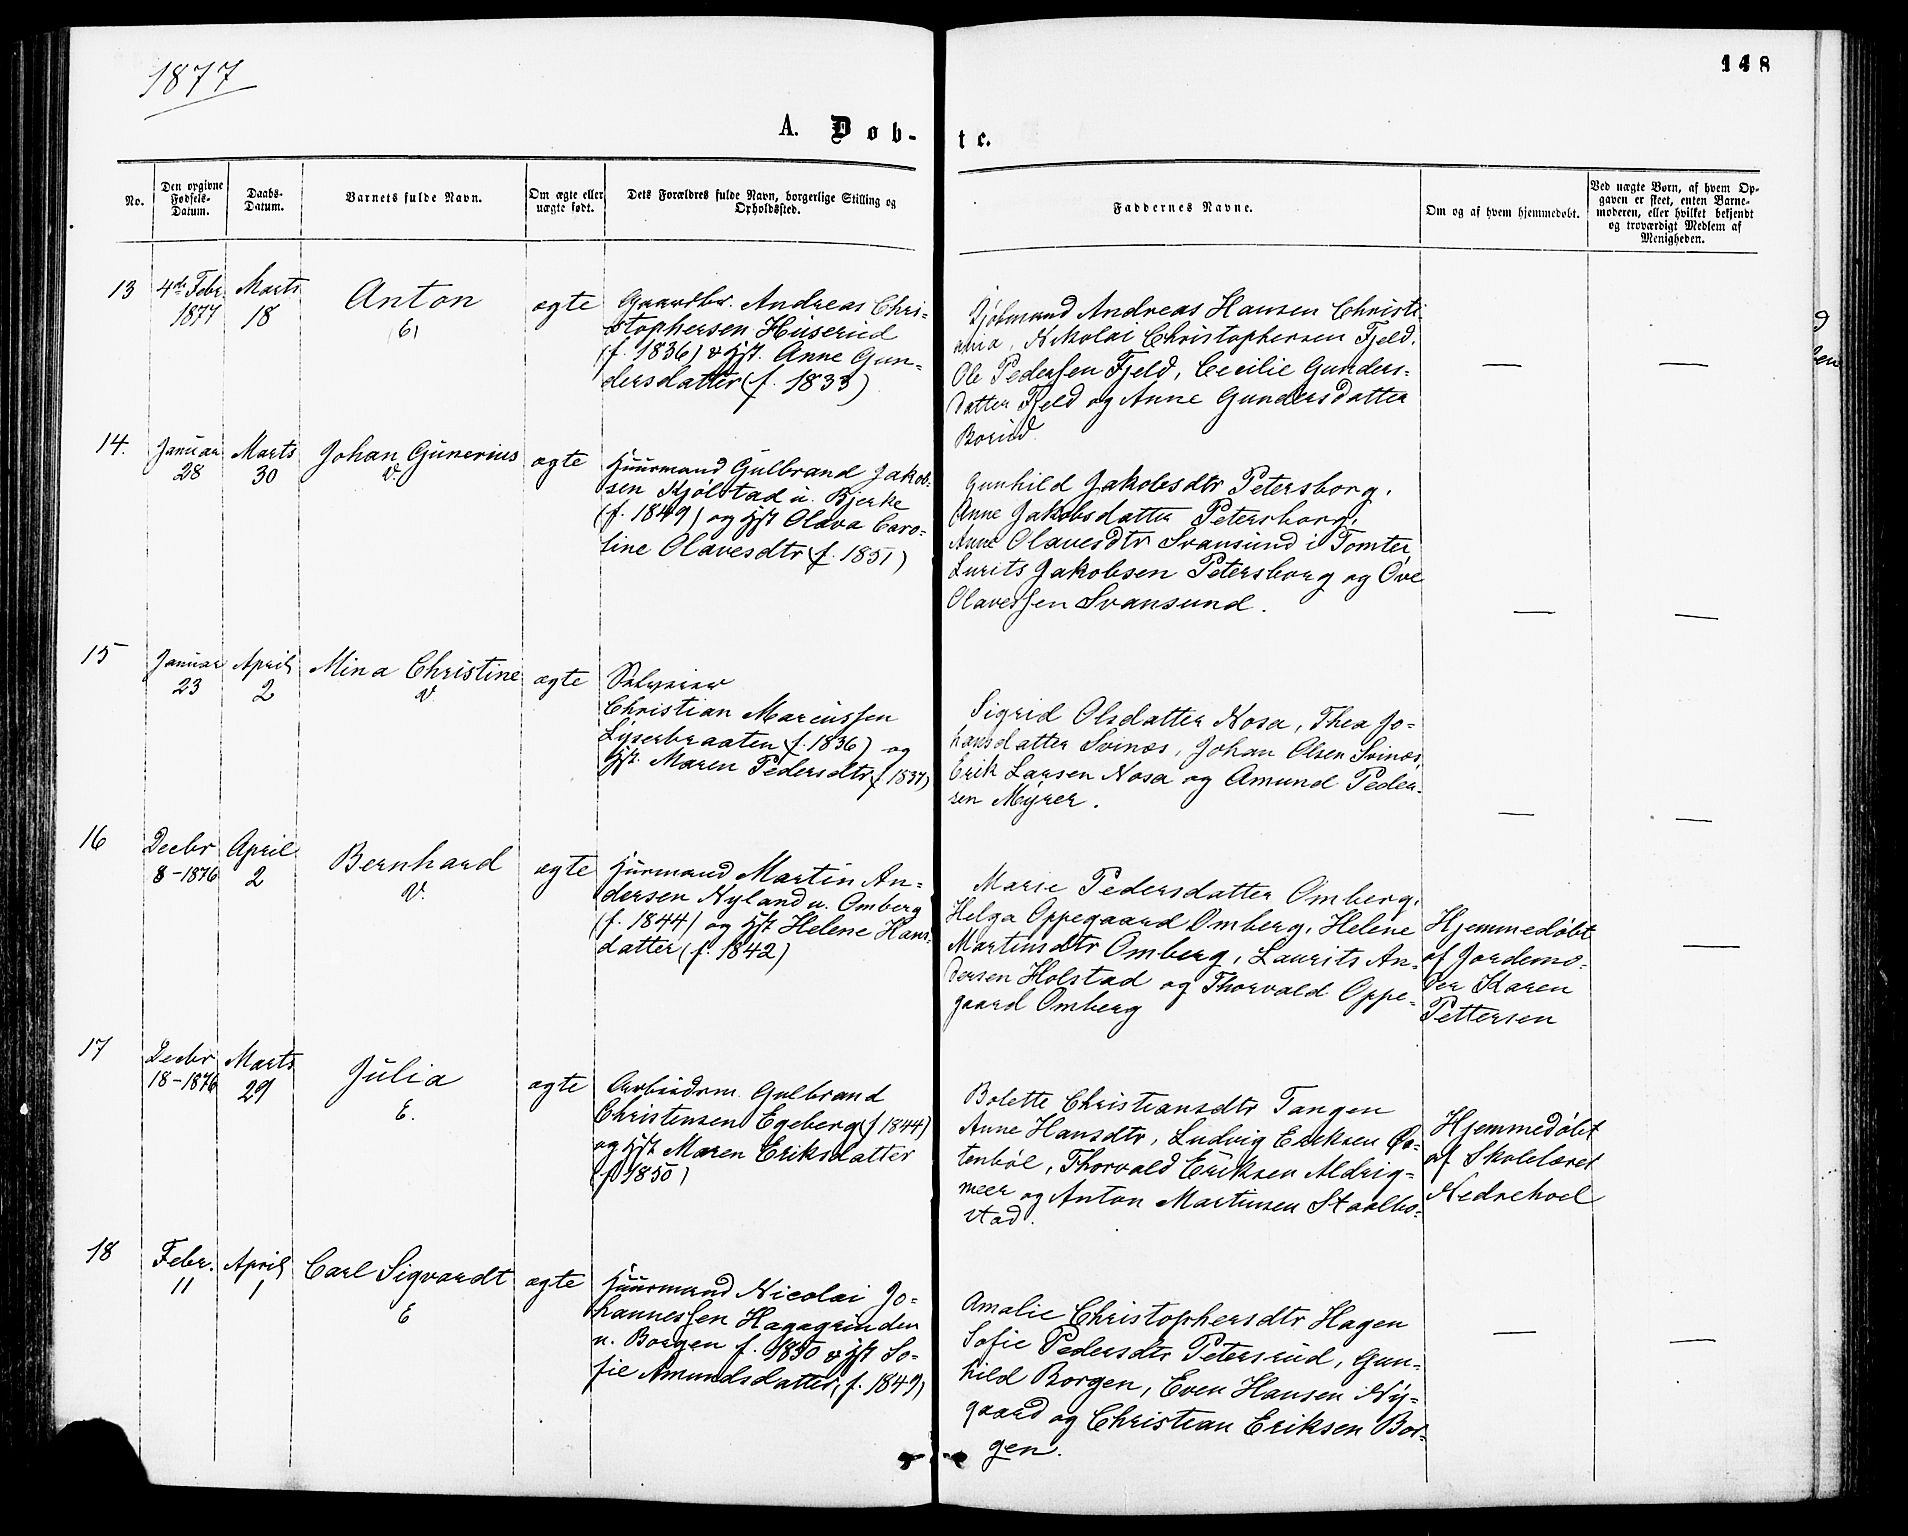 1877
148
A. Døb-
te.
No.
Den opgivne
Fødsels-
Datum.
Daabs-
Datum.
Barnets fulde Navn.
Om ægte eller
uægte født.
Dets Forældres fulde Navn, borgerlige Stilling og
Opholdssted.
Faddernes Navne.
Om og af hvem hjemmedøbt.
Ved uægte Børn, af hvem Op-
gaven er skeet, enten Barne-
moderen, eller hvilket bekjendt
og troværdigt Medlem af
Menigheden.
13
4de Febr.
1877
Marts
18
Anton
ægte
Gaardbr. Andreas Chri-
stophersen Huserud
(f. 1836) & Hst. Anne Gun-
dersdatter (f. 1833)
Andreas Hansen Christi
ania, Nikolai Christophersen Fjeld,
Ole Pedersen Fjeld, Cecilie Gunders-
datter Fjeld og Anne Gundersdatter
Borud
—
—
14.
Januar
28
Marts
30
Johan Gunerius
V.
ægte
Huurmand Gulbrand Jakob-
sen Kjølstad u. Bjerke
(f. 1849) og Hst Olava Caro-
line Olavesdtr (f. 1851)
Gunhild Jakobsdtr Petersborg,
Anne Jakobsdatter Petersborg,
Anne Olavesdtr Svansund i Tomter
Lurits Jakobsen Petersborg og Ove
Olavessen Svansund.
—
—
15
Januar
23
April
2
Mina Christine
V.
ægte
Selveier
Christian Marcussen
Lyserbraaten (f. 1836) og
Hst. Maren Pedersdtr (f. 1837)
Sigrid Olsdatter Nosa, Thea Jo-
hansdatter Svinos, Johan Olsen Svinos
Erik Larsen Nosa og Amund Peder-
sen Myrer.
—
—
16
Decbr
8-1876
April
2
Bernhard
V.
ægte
Huurmand Martin An-
dersen Nyland u. Omberg
(f. 1844) og Hst Helene Hans-
datter (f. 1842)
Marie Pedersdatter Omberg,
Helga Oppegaard Omberg, Helene
Martinsdtr Omberg, Laurits An-
dersen Holstad og Thorvald Oppe-
gaard Omberg
Hjemmedøbt
af Jordemo-
der Karen
Pettersen
—
17
Decbr
18-1876
Marts
29
Julia
E.
ægte
Arbeidsm. Gulbrand
Christensen Egeberg (f 1844)
og Hst Maren Eriksdatter
(f 1850)
Bolette Christiansdtr Tangen
Anne Hansdtr, Ludvig Eriksen Øs-
tenbøl, Thorvald Eriksen Aldrig-
meer og Anton Martinsen Staalbo-
stad.
Hjemmedøbt
af Skolelærer
Nedrehoel
18
Febr.
11
April
1
Carl Sigvardt
E
ægte
Huurmand Nicolai Jo-
hannessen Hagagrinden
u. Borgen f. 1850 & Hst So-
fie Amundsdatter, f. 1849)
Amalie Christophersdtr Hagen
Sofie Pedersdtr Petersrud, Gun-
hild Borgen, Even Hansen Ny-
gaard og Christian Eriksen Bor-
gen.
—
—